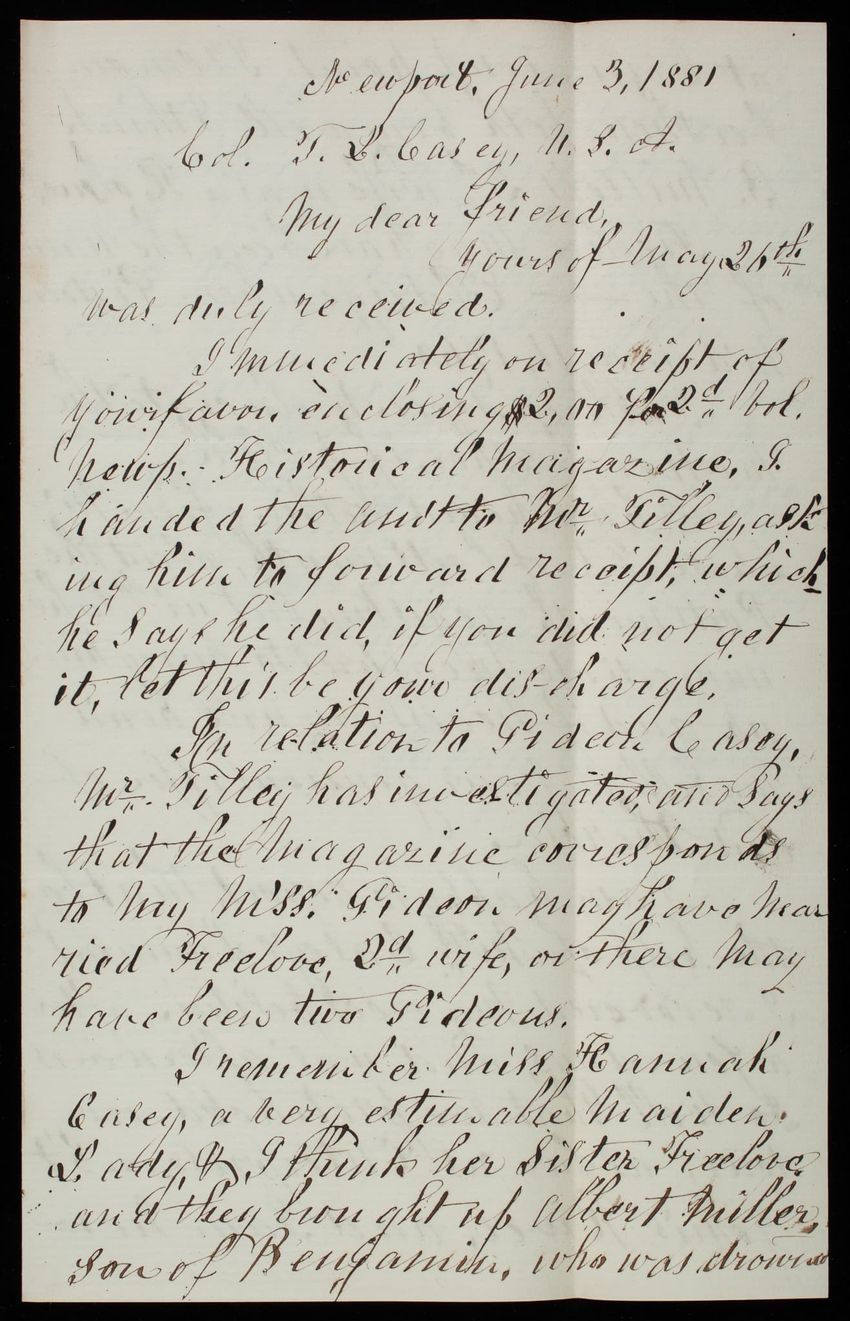 Newport, June 3, 1881
Col. T. L. Casey, U. S. A.
My dear friend,
Yours of May 26th
was duly received.
Immediately on receipt of
your favor enclosing $2,00 for 2d Vol.
Newp. Historical Magazine, I
handed the amt to Mr Tilley, ask
ing him to forward receipt, which
he says he did, if you did not get
it, let this be your dis-charge.
In relation to Gideon Casey,
Mr. Tilley has investigated, and says
that the Magazine corresponds
to my MSS. Gideon may have mar
ried Freelove, 2d wife, or there may
have been two Gideons.
I remember Miss Hannah
Casey, a very estimable maiden
Lady, & I think her sister Freelove,
and they brought up Albert Miller,
son of Benjamin, who was drowned